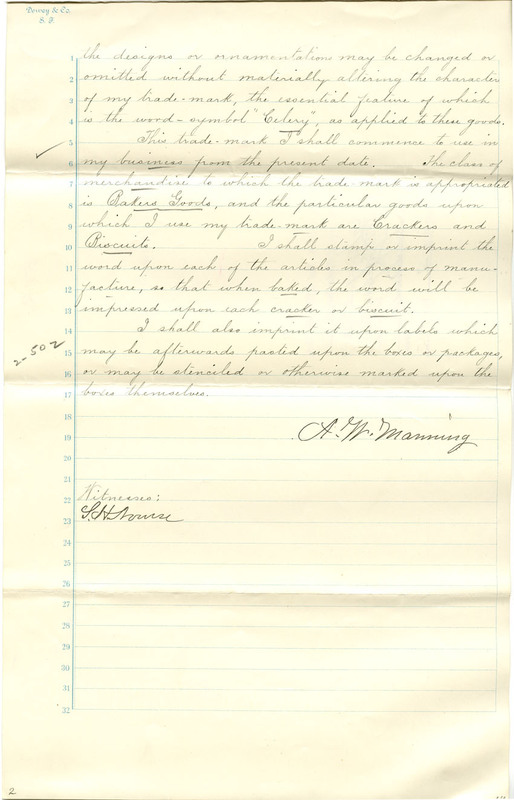 Dewey & Co.
S. F.
1 the designs or ornamentations may be changed or
2 omitted without materially altering the character
3 of my trade-mark, the essential feature of which
4 is the word-symbol "Celery", as applied to these goods.
5 This trade-mark I shall commence to use in
6 my business from the present date. The class of
7 merchandise to which the trade mark is appropriated
8 is Bakers Goods, and the particular goods upon
9 which I use my trade-mark are Crackers and
10 Biscuits. I shall stamp or imprint the
11 word upon each of the articles in process of manu-
12 facture, so that when baked, the word will be
13 impressed upon each cracker or biscuit.
14 I shall also imprint it upon labels which
2-502
15 may be afterwards pasted upon the boxes or packages,
16 or may be stenciled or otherwise marked upon the
17 boxes themselves.
18
19 A. W. Manning
20
21
22 Witnesses:
23 S. H. Nourse
24
25
26
27
28
29
30
31
32
2